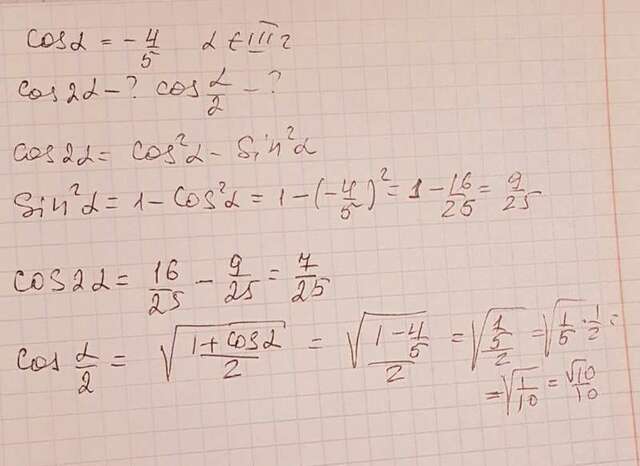 cosα = -4/5 α ∈ III г
cos2α - ? cos α/2 - ?
cos2α = cos²α - sin²α
sin²α = 1 - cos²α = 1 - (-4/5)² = 1 - 16/25 = 9/25
cos2α = 16/25 - 9/25 = 7/25
cos α/2 = √((1 + cosα)/2) = √((1 - 4/5)/2) = √((1/5)/2) = √(1/5 · 1/2) =
= √(1/10) = √10/10